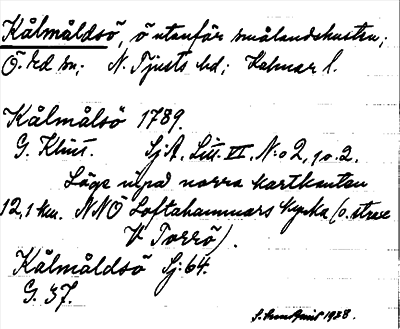 Kålmåldsö, ö utanför smålandskusten;
Ö. Ed sn; N. Tjusts hd; Kalmar l.
Kålmålsö 1789.
G. Klint. SjA. Litt. VI. N:o 2, 1 o. 2.
Läge uppå norra kartkanten
12,1 km. NNO Loftahammars kyrka (o. strax
V Torrö).
Kålmåldsö Sj: 64.
G. 37.
1928.